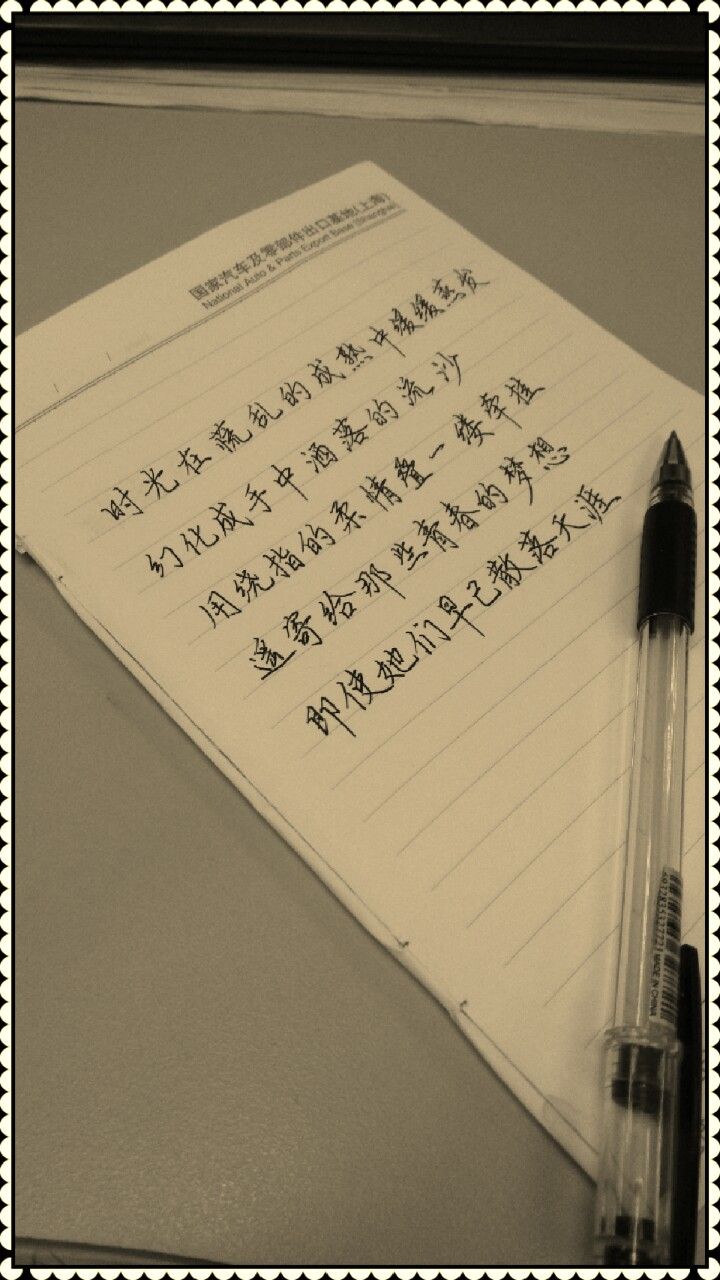 国家汽车及零部件出口基地(上海)
National Auto & Parts Export Base (Shanghai)
时光在慌乱的成熟中缓缓蒸发
幻化成手中洒落的流沙
用绕指的柔情叠一缕牵挂
遥寄给那些青春的梦想
即使她们早已散落天涯
MADE IN CHINA